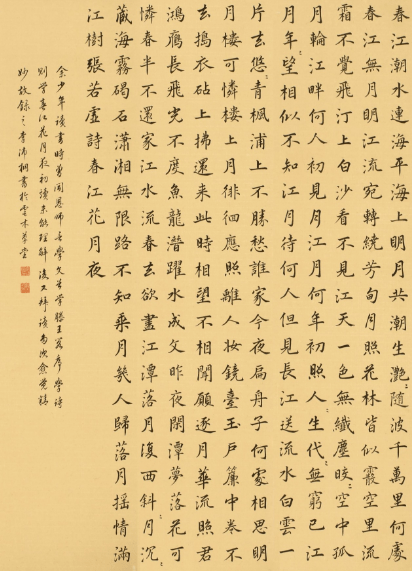 春江潮水連海平海上明月共潮生灧〻隨波千萬里何處
春江無月明江流宛轉繞芳甸月照花林皆似霰空里流
霜不覺飛汀上白沙看不見江天一色無纖塵皎〻空中孤
月輪江畔何人初見月江月何年初照人〻生代〻無窮已江
月年〻望相似不知江月待何人但見長江送流水白雲一
片去悠〻青楓浦上不勝愁誰家今夜扁舟子何處相思明
月樓可憐樓上月徘徊應照離人妝鏡臺玉戶簾中卷不
去搗衣砧上拂還來此時相望不相聞願逐月華流照君
鴻鴈長飛光不度魚龍潛躍水成文昨夜閑潭夢落花可
憐春半不還家江水流春去欲盡江潭落月復西斜〻月沉〻
藏海霧碣石瀟湘無限路不知乘月幾人歸落月搖情滿
江樹張若虛詩春江花月夜
余少年讀書時曾聞恩師學文首學滕王閣序學詩
則學春江花月夜初讀未能理解後又拜讀愈覺精
妙故錄之李沛桐書於雲林草堂